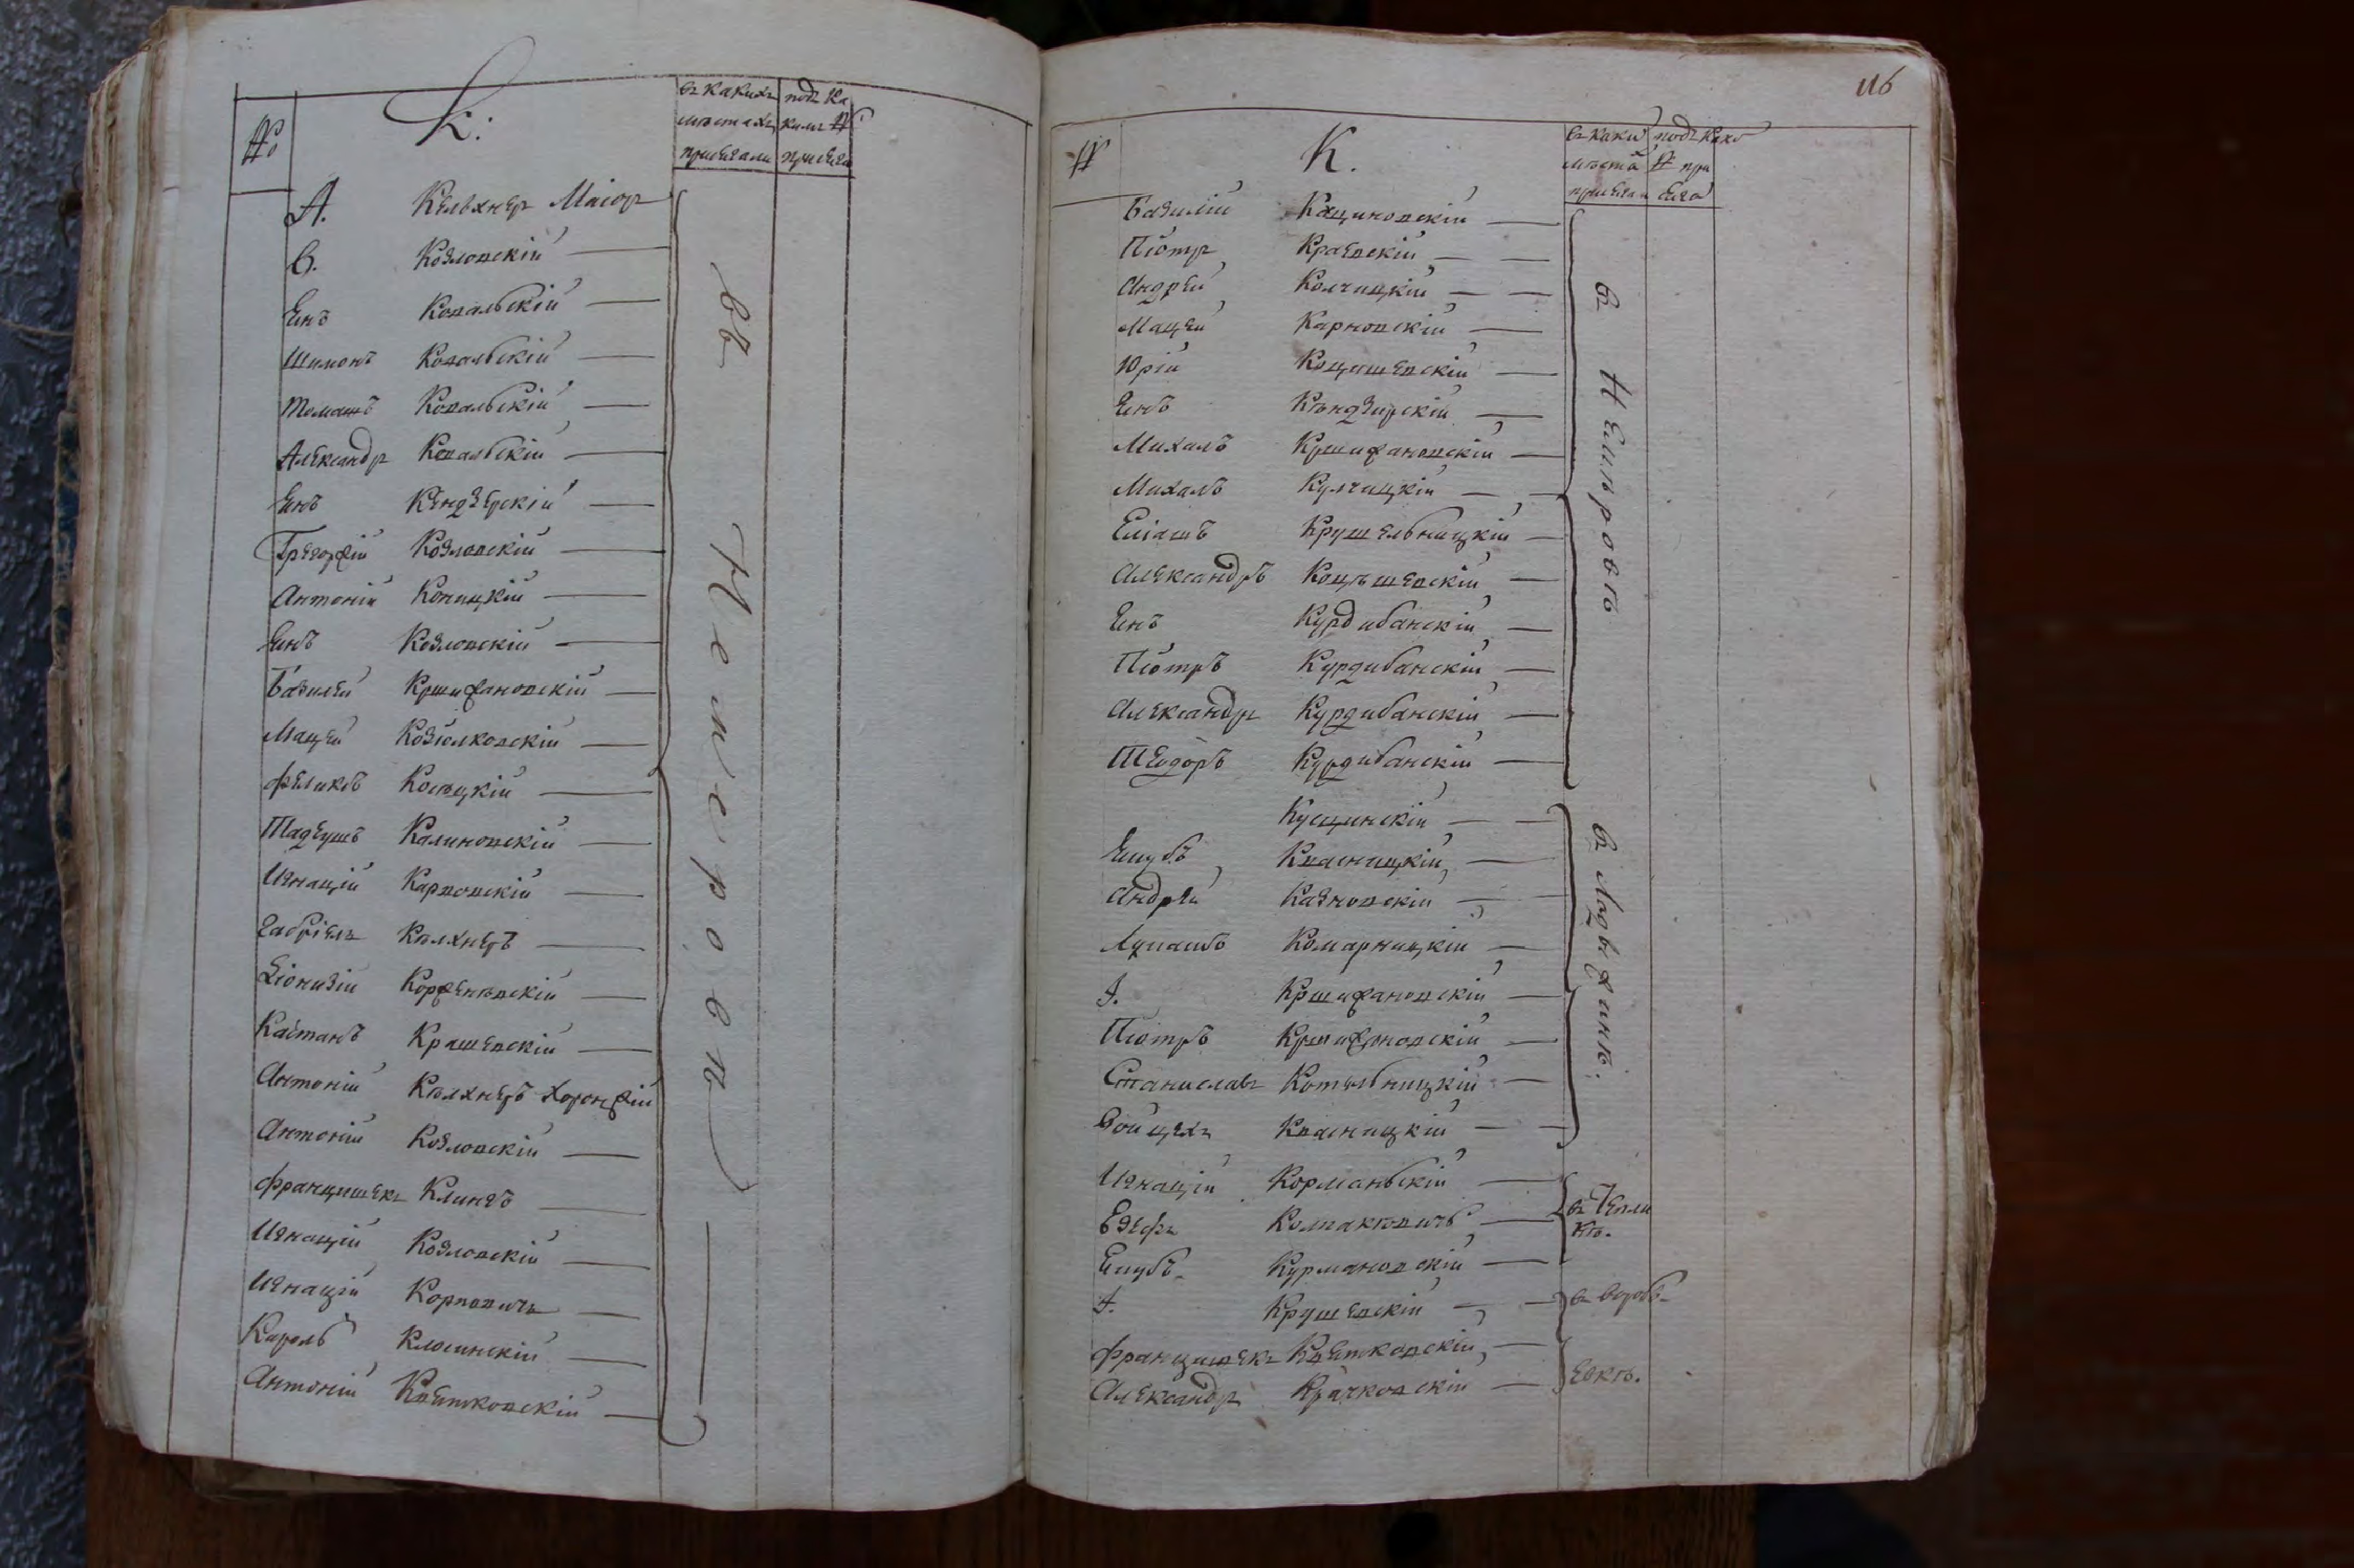 №
К:
въ какихъ
местахъ
присягали
подъ ка
кимъ №
присяга
А. Кельхнеръ Маіоръ
В. Козловскій
Енъ Ковальскій
Шимонъ Ковальскій
Томашъ Ковальскій
Александръ Ковальскій
Енъ Кендзерскій
Грегоржій Козловскій
Антоній Коницкій
Енъ Козловскій
Базилей Кршижановскій
Мацей Козіолковскій
Феликсъ Косецкій
Тадеушъ Калиновскій
Игнацій Карвовскій
Габріель Келхнеръ
Діонизій Корженевскій
Каетанъ Крашевскій
Антоній Келхнеръ Хоронжій
Антоній Козловскій
Францишекъ Клингъ
Игнацій Козловскій
Игнацій Корповичъ
Кароль Клосинскій
Антоній Квѣтковскій
въ Немировѣ
116
№
К.
въ каки
мѣста
присяган
подъ како
№ при
сяга
Базилій Кациновскій
Піотръ Краевскій
Андрей Колчицкій
Мацей Карновскій
Юрій Коцишевскій
Енъ Кѣндзирскій
Михалъ Кршижановскій
Михалъ Кулчицкій
Еліашъ Крушельницкій
Александръ Коцѣшевскій
Енъ Курдибанскій
Піотръ Курдибанскій
Александръ Курдибанскій
Теодоръ Курдибанскій
въ Немѣровѣ
Кусцинскій
Енубъ Квасницкій
Андрей Казновскій
Лукашъ Комарницкій
І. Кршижановскій
Піотръ Кршижановскій
Станиславъ Котельницкій
Войцехъ Квасницкій
въ Ладыжинѣ.
Игнацій Корманьскій
Езефъ Колпакѣвичъ
Енубъ Курмановскій
въ Тепли
кѣ.
І. Крушевскій
Францишекъ Квѣтковскій
Александръ Крачковскій
въ Вороб-
евкѣ.